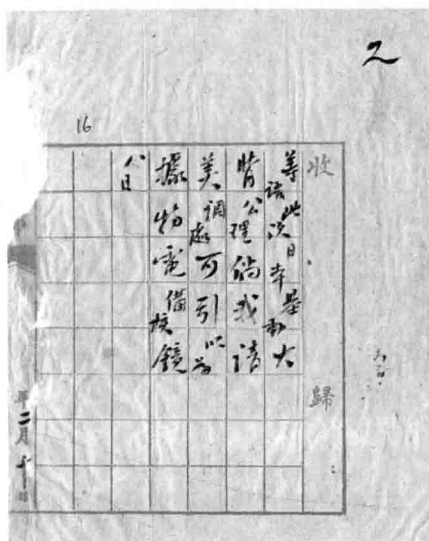 2
16
收 歸
等語此次日本動大
背公理倘我請
美調處可引以為
據電備核鏡
八日
年二月十日